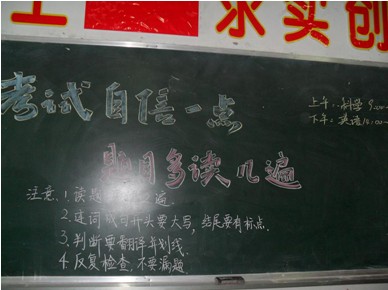 求实创
考试自信一点
上午:科学9:00
下午:英语
题目多读几遍
注意:1.读题 遍.
2.连词成句开头要大写,结尾要有标点.
3.判断要翻译并划线.
4.反复检查,不要漏题.